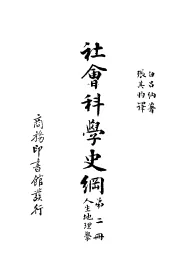 白呂納著
張其昀譯
社會科學史綱
第二冊
人生地理學
商務印書館發行